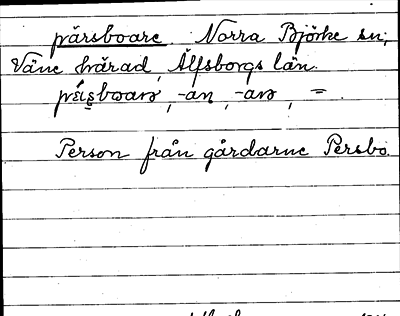 pärsboare. Norra Björke sn,
Väne härad, Älfsborgs län.
-an, -arɘ, =
Person från gårdarne Persbo.